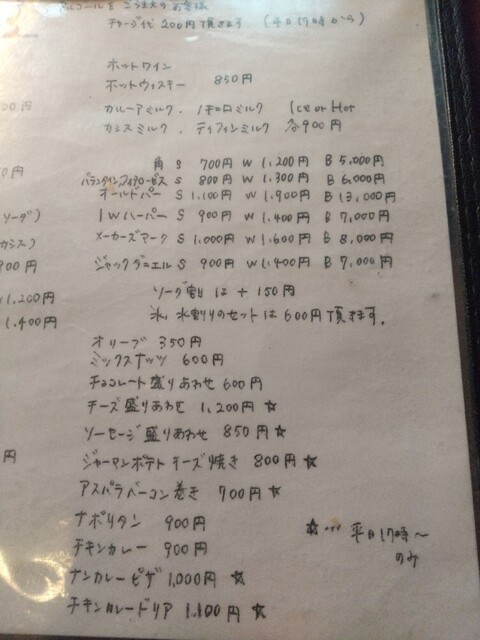 アルコールを ご注文の お客様
チャージ代 200円頂きます. (平日17時から)
ホットワイン
ホットウィスキー 850円
カルーアミルク. イチゴミルク Ice or Hot
カシスミルク. ティフィンミルク 各900円
角 S 700円 W 1,200円 B 5,000円
バランタイン,フォアローゼス S 800円 W 1,300円 B 6,000円
オールドパー S 1,100円 W 1,900円 B 13,000円
I Wハーパー S 900円 W 1,400円 B 7,000円
メーカーズマーク S 1,000円 W 1,600円 B 8,000円
ジャックダニエル S 900円 W 1,400円 B 7,000円
ソーダ割りは + 150円
氷, 水割りのセットは600円頂きます.
オリーブ 350円
ミックスナッツ 600円
チョコレート盛りあわせ 600円
チーズ盛りあわせ 1,200円 ☆
ソーセージ盛りあわせ 850円 ☆
ジャーマンポテトチーズ焼き 800円 ☆
アスパラベーコン巻き 700円 ☆
ナポリタン 900円
チキンカレー 900円
ナンカレーピザ 1,000円 ☆
チキンカレードリア 1,100円 ☆
☆… 平日17時〜
のみ
00円
0円
ソーダ)
カシス)
900円
1,200円
1,400円
円